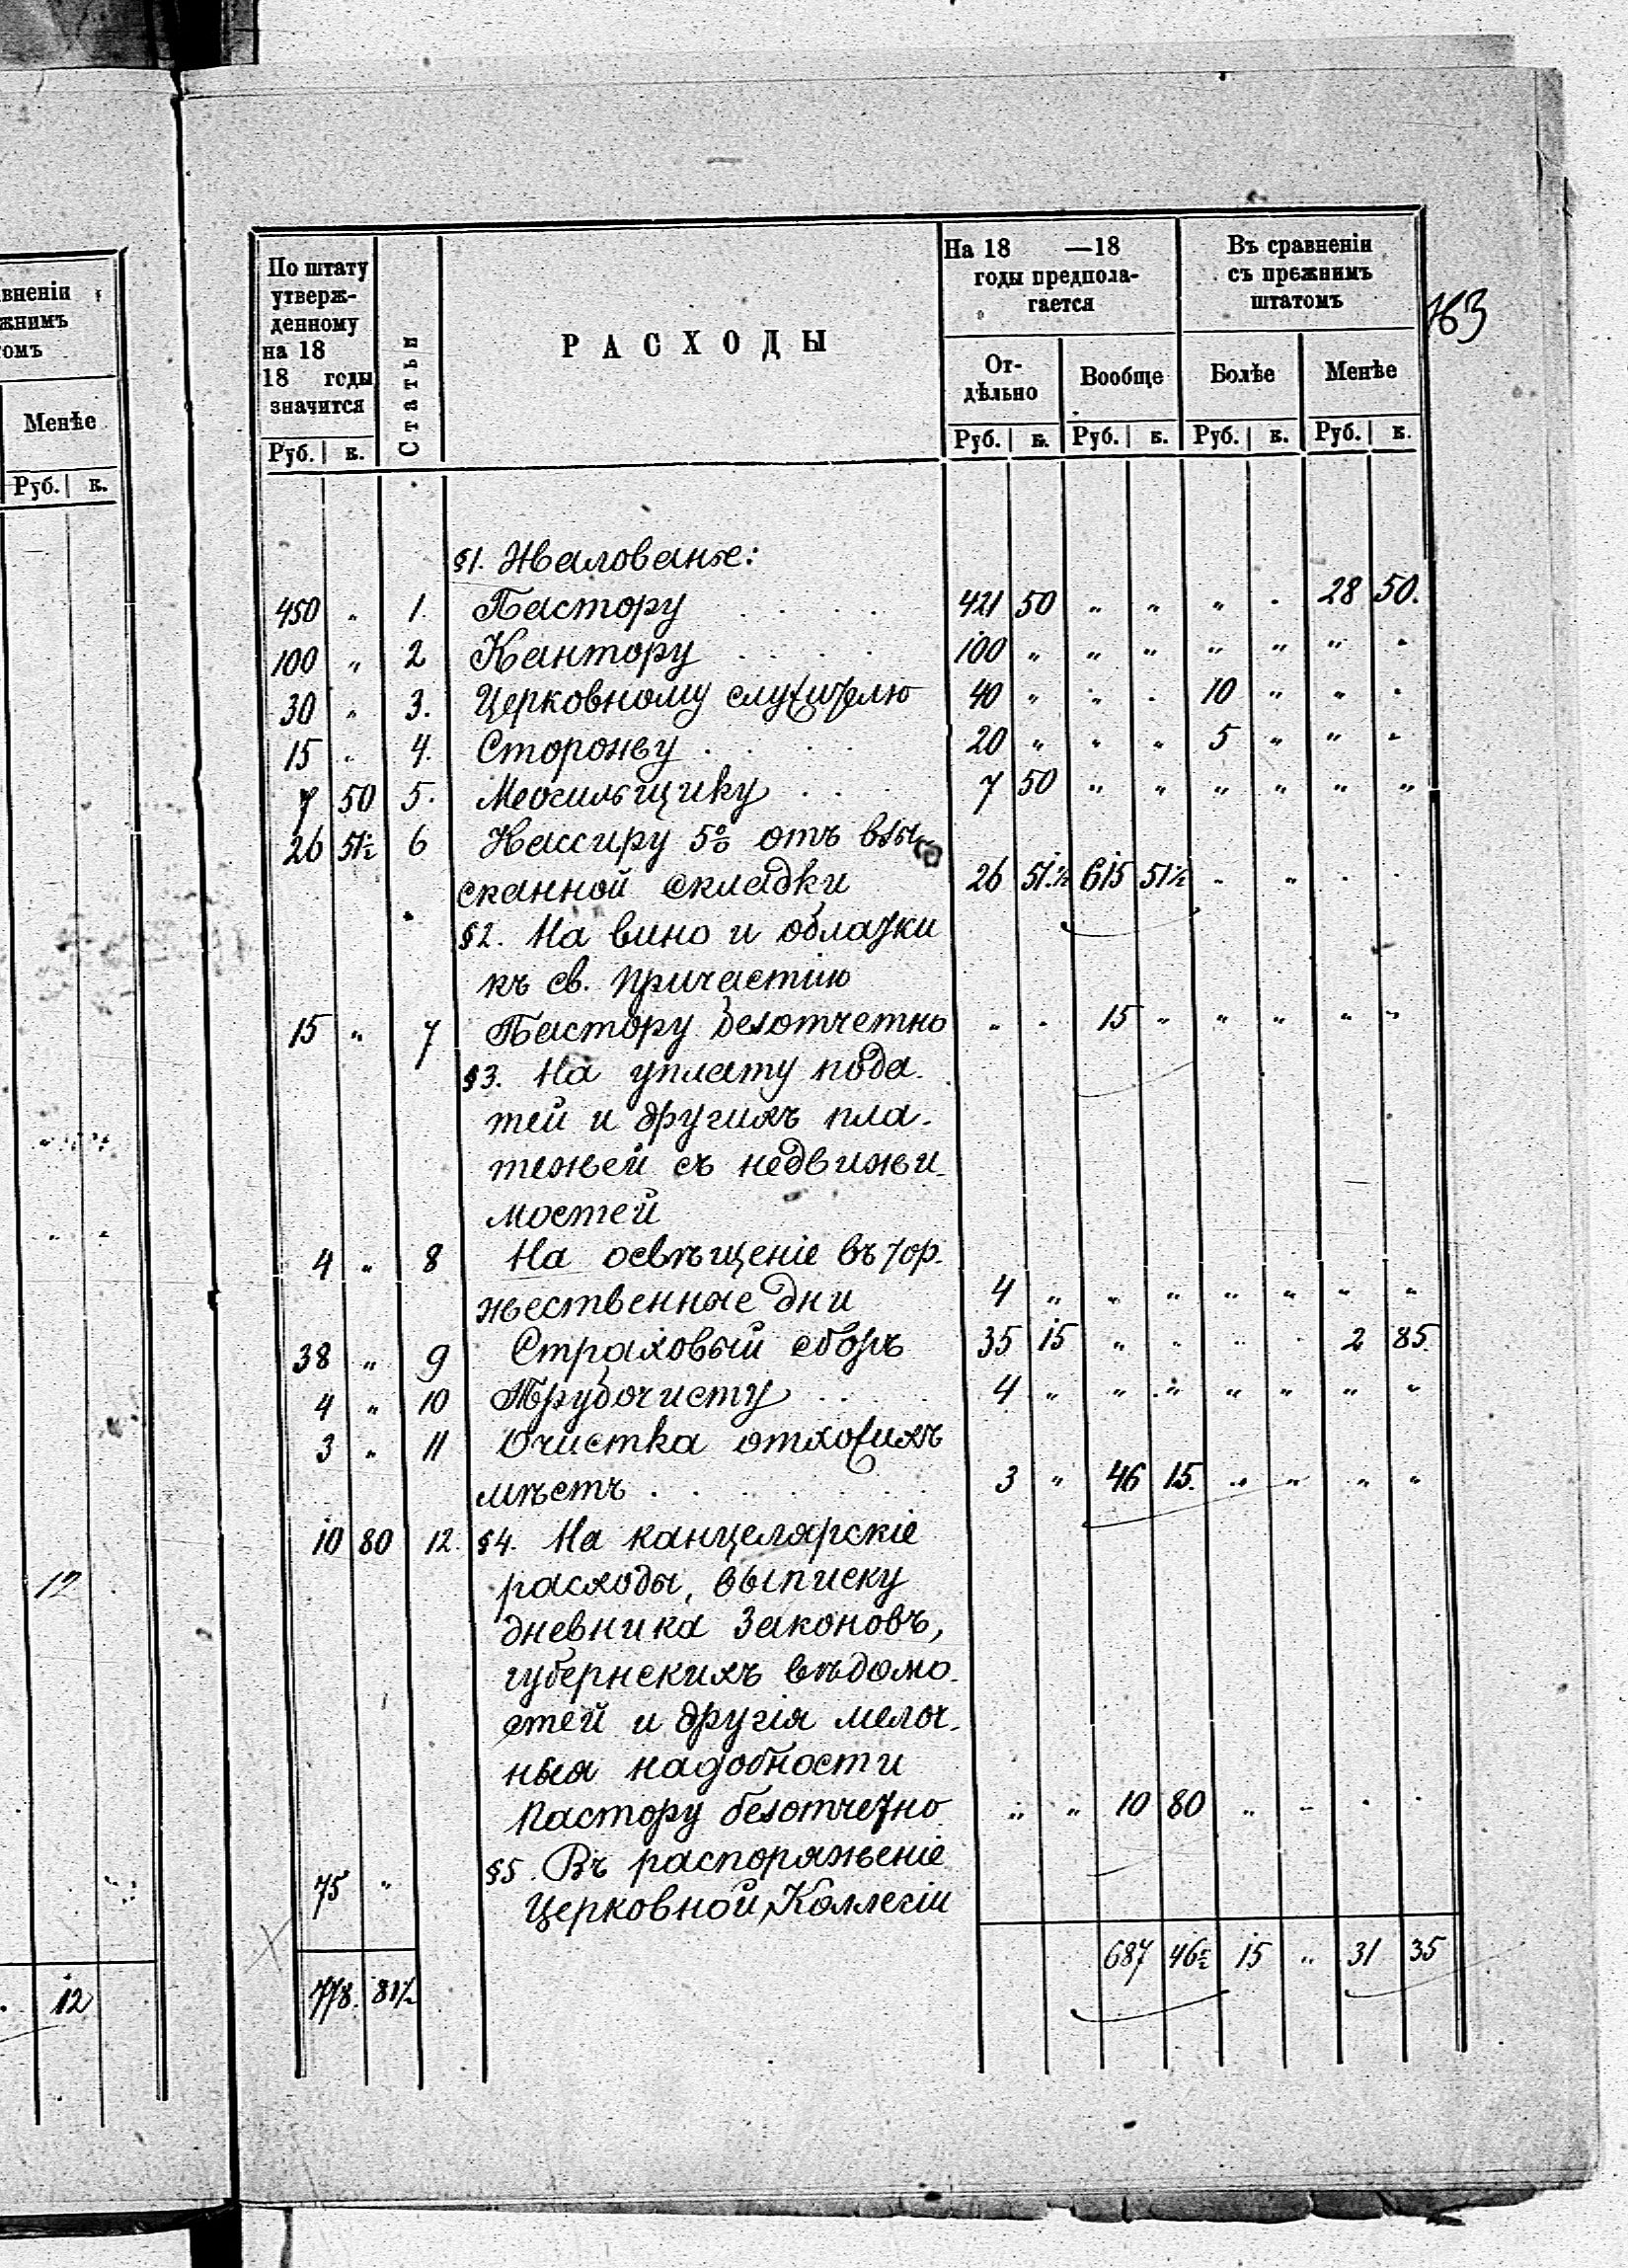 вненіи
жнимъ
омъ
Менѣе
Руб. к.
12
12
163
По штату утверж-денному на 18 18 годы значится
Статьи
РАСХОДЫ
На 18 —18 годы предпола-гается
Въ сравненіи съ прежнимъ штатомъ
От-дѣльно Вообще Болѣе Менѣе
Руб. к. Руб. к. Руб. к. Руб. к. Руб. к.
§1. Жалованье:
450 „ 1. Пастору . . . . 421 50 „ „ „ . 28 50.
100 „ 2 Кантору . . . . 100 „ „ „ „ „ „ .
30 „ 3. Церковному служителю 40 „ „ . 10 „ „ .
15 „ 4. Сторожу . . . . 20 „ „ „ 5 „ „ „
7 50 5. Могильщику . . . 7 50 „ „ „ „ „ „
26 51½ 6 Кассиру 5% отъ взы-
сканной складки 26 51½ 615 51½ „ „ . .
§2. На вино и облатки
къ св. причастію
15 „ 7 Пастору безотчетно „ . 15 „ „ „ „ „
§3. На уплату пода-
тей и другихъ пла-
тежей съ недвижи-
мостей
4 „ 8 На освѣщеніе въ тор-
жественные дни 4 „ „ „ „ „ „ „
38 „ 9 Страховый сборъ 35 15 „ „ „ . 2 85.
4 „ 10 Трубочисту . . . 4 „ „ „ „ „ „ „
3 „ 11 Очистка отхожихъ
мѣстъ . . . . . . . 3 „ 46 15. „ „ „ „
10 80 12. §4. На канцелярскіе
расходы, выписку
дневника законовъ,
губернскихъ вѣдомо-
стей и другія мелоч-
ныя надобности
Пастору безотчетно „ „ 10 80 „ „ . .
75 „ §5. Въ распоряженіе
Церковной Коллегіи
687 46½ 15 „ 31 35
778. 81½